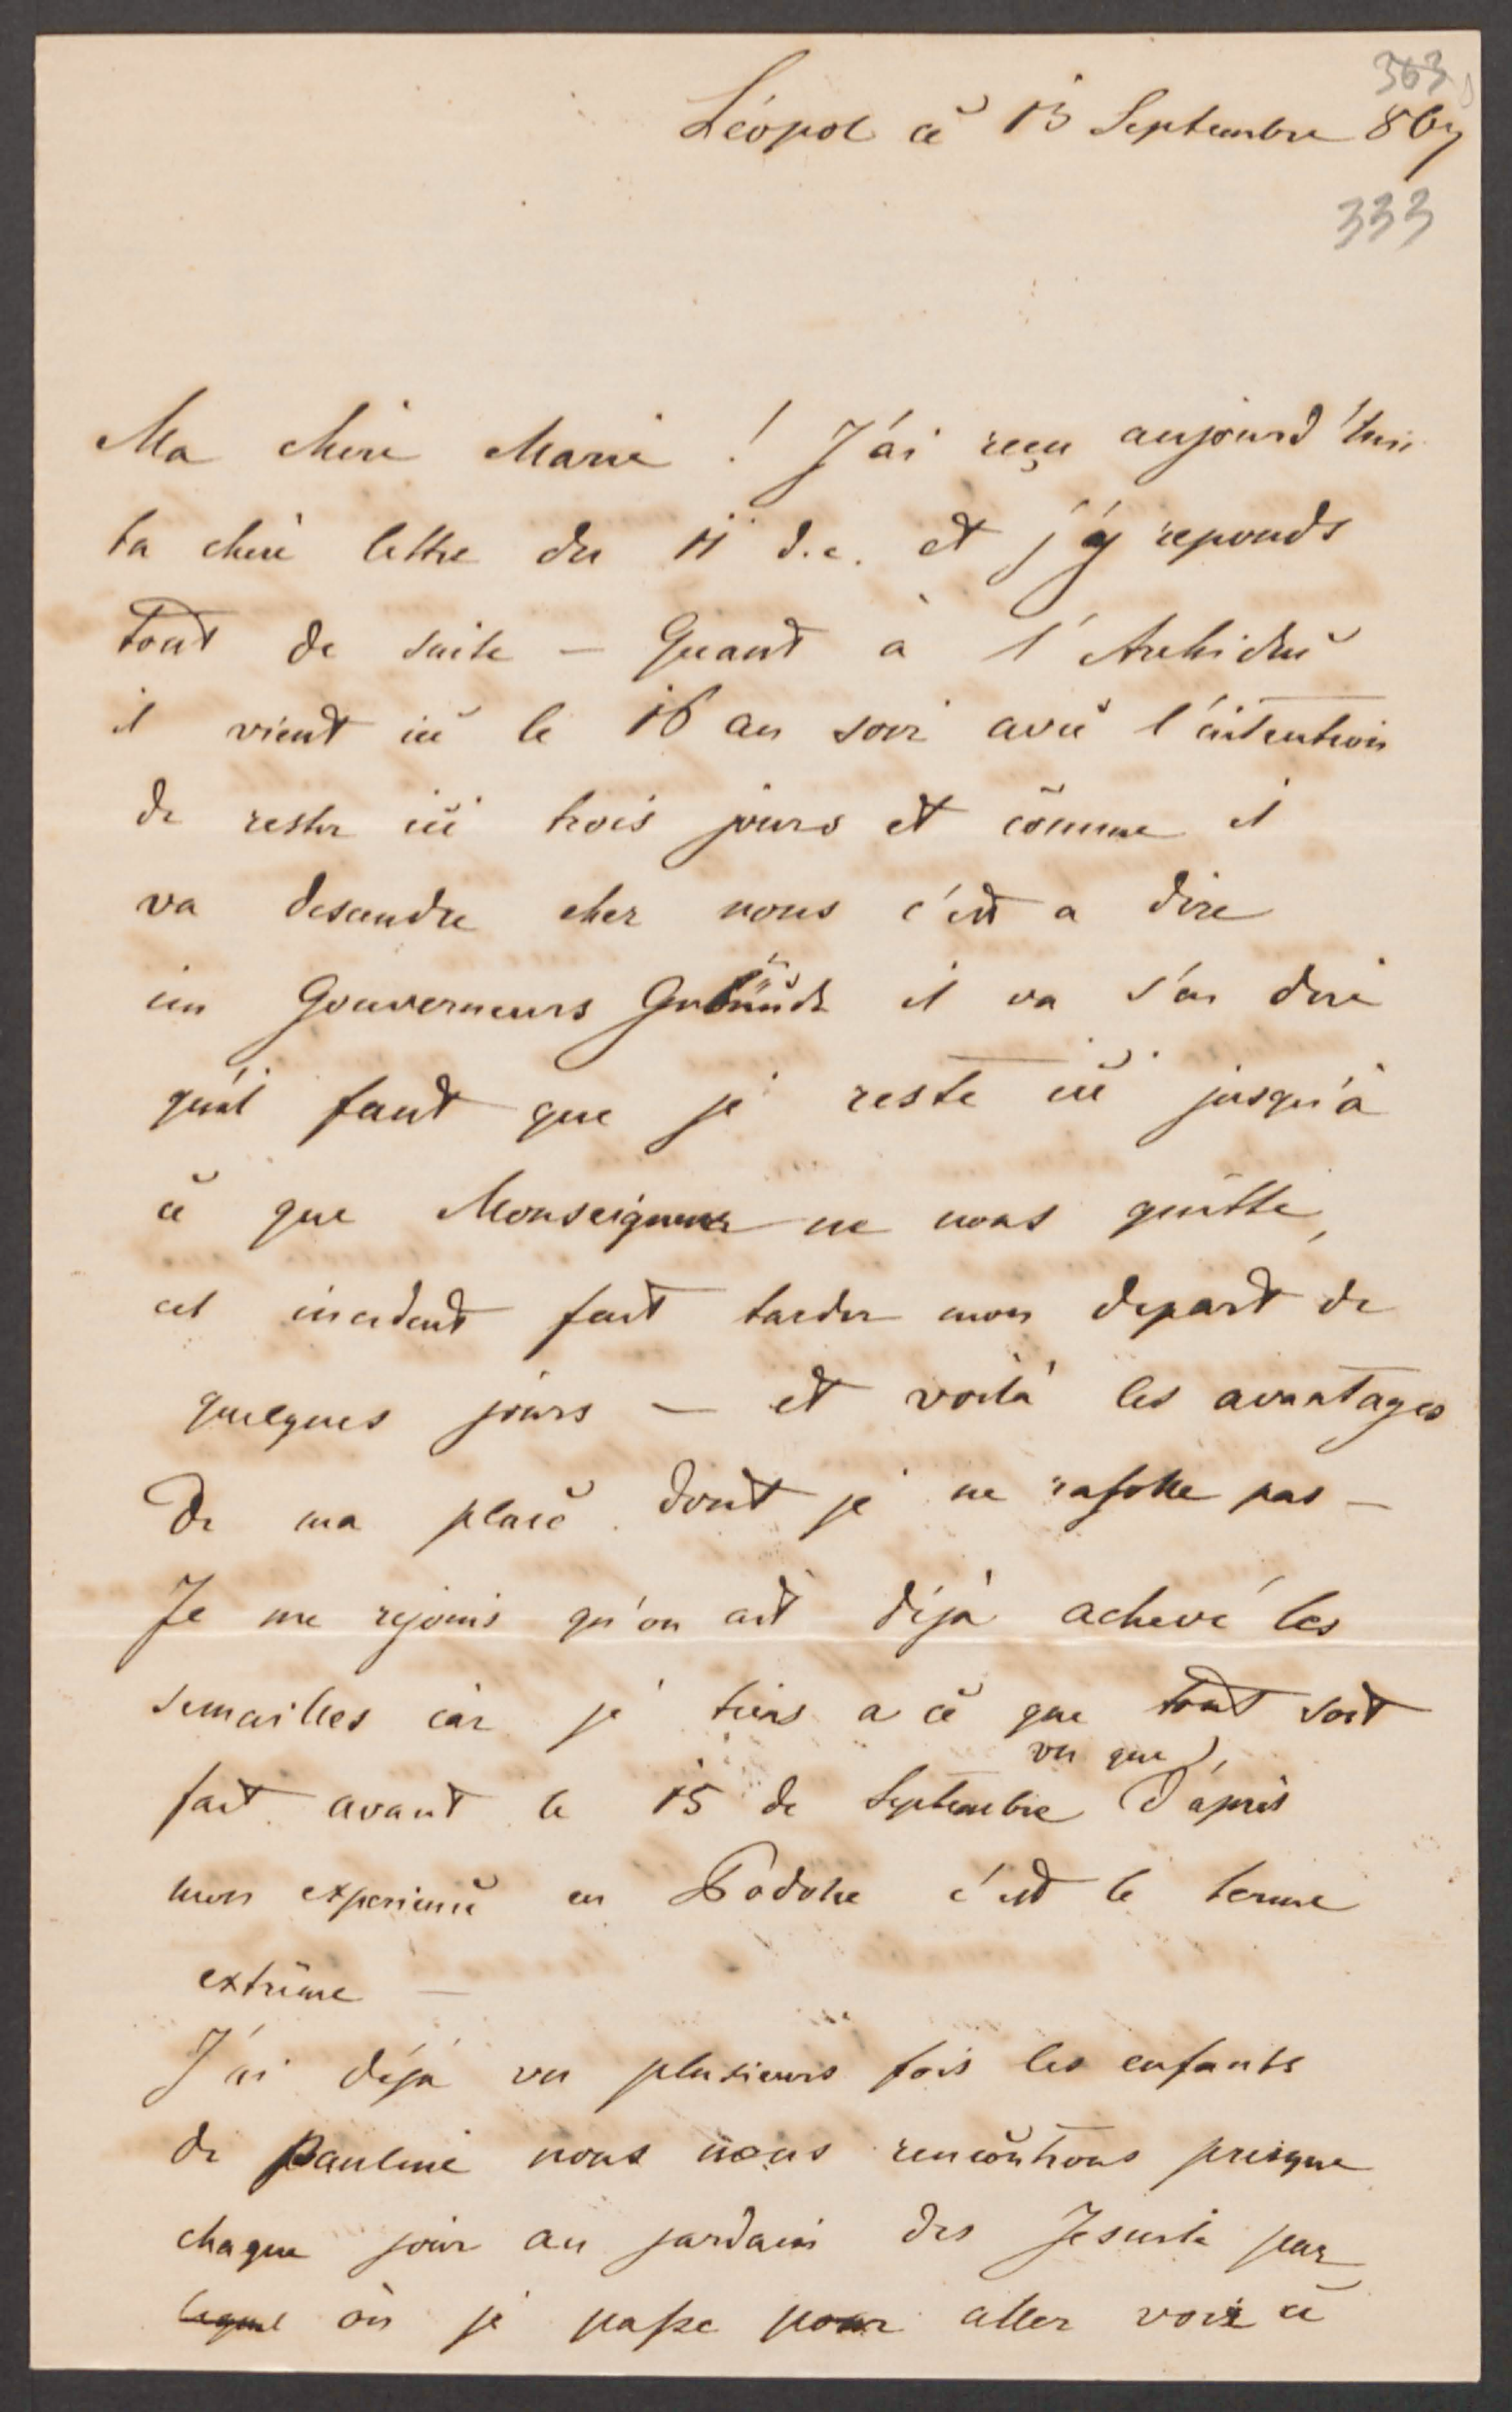 363
Léopol ce 13 Septembre 867
333
Ma chere Marie ! J'ai reçu aujourd'hui
ta chere lettre du 11 d.c. et j'y reponds
tout de suite — Quant à l'Archiduc
il vient ici le 16 au soir avec l'intention
de rester ici trois jours et comme il
va descendre chez nous c'est a dire
im Gouverneurs Gebäude il va s'en dire
qu'il faut que je reste ici jusqu'à
ce que Monseigneur ne nous quitte,
cet incident fait tarder mon depart de
quelques jours — et voilà les avantages
de ma place dont je ne rafolle pas —
Je me rejouis qu'on ait déjà achevé les
semailles car je tiens a ce que tout soit
vu que
fait avant le 15 de Septembre d'après
mon experience en Podolie c'est le terme
extrême —
J'ai déjà vu plusieurs fois les enfants
de Pauline nous nous rencontrons presque
chaque jour au jardain des Jesuite par
lequel où je passe pour aller voir ce